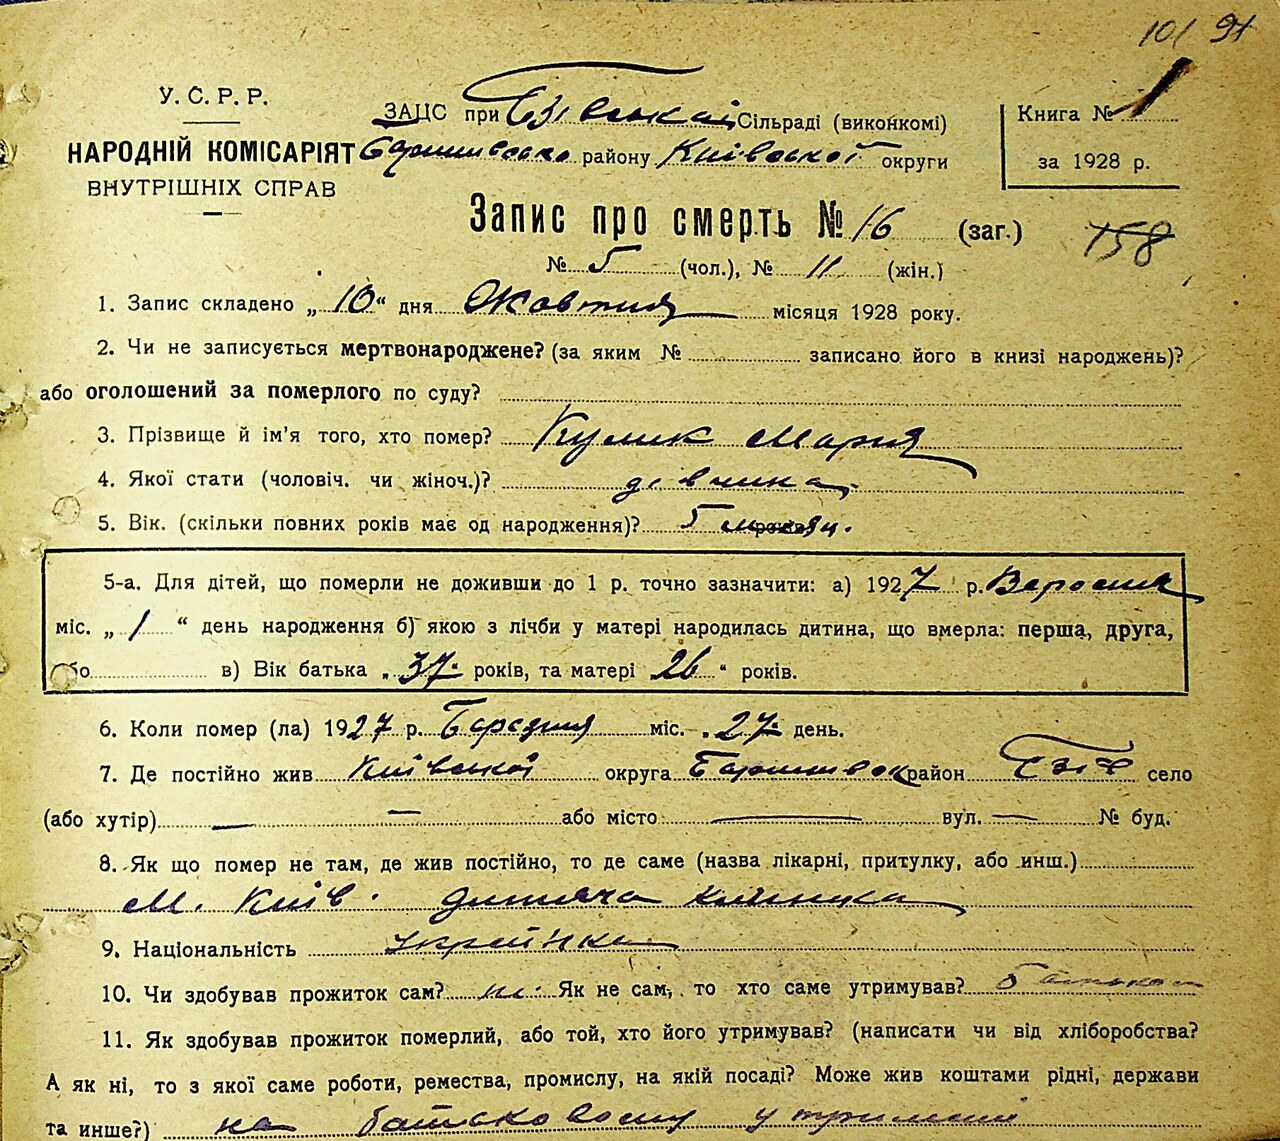 101 91
У. С. Р. Р.
НАРОДНІЙ КОМІСАРІЯТ
ВНУТРІШНІХ СПРАВ
ЗАЦС при Бзівській Сільраді (виконкомі)
Баришівсько району Київської округи
Книга № 1
за 1928 р.
Запис про смерть № 16 (заг.)
158
№ 5 (чол.), № 11 (жін.)
1. Запис складено „10“ дня Жовтня місяця 1928 року.
2. Чи не записується мертвонароджене? (за яким № записано його в книзі народжень)?
або оголошений за померлого по суду?
3. Прізвище й ім'я того, хто помер? Кулик Мария
4. Якої стати (чоловіч. чи жіноч.)? дівчина
5. Вік. (скільки повних років має од народження)? 5 місяц.
5-а. Для дітей, що померли не доживши до 1 р. точно зазначити: а) 1927 р. Вересня
міс. „1“ день народження б) якою з лічби у матері народилась дитина, що вмерла: перша, друга,
або в) Вік батька „37“ років, та матері 26 “ років.
6. Коли помер (ла) 1927 р. Березня міс. „27“ день.
7. Де постійно жив Київської округа Баришівськ район Бзів село
(або хутір) — — або місто — вул. — № буд.
8. Як що помер не там, де жив постійно, то де саме (назва лікарні, притулку, або инш.)
М. Київ. дитяча клиника
9. Національність Українка
10. Чи здобував прожиток сам? ні. Як не сам, то хто саме утримував? батько
11. Як здобував прожиток померлий, або той, хто його утримував? (написати чи від хліборобства?
А як ні, то з якої саме роботи, ремества, промислу, на якій посаді? Може жив коштами рідні, держави
та инше?) на батьковому утриманні